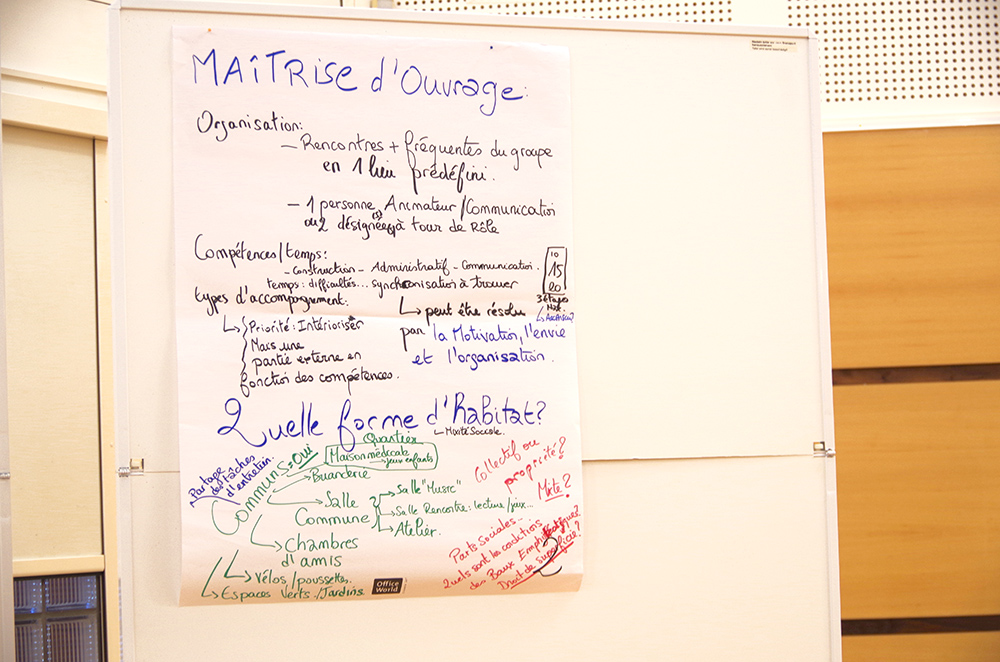 MAÎTRISE d'Ouvrage:
Organisation:
– Rencontres + fréquentes du groupe
en 1 lieu prédéfini.
– 1 personne Animateur / Communication
ou 2 désignée(s) à tour de Rôle
Compétences / temps:
– Construction – Administratif – Communication.
temps: difficultés... synchronisation à trouver
10
15
20
3 étages
Max.
↳ Ascenseur?
types d'accompagnement:
↳ Priorité: Intérioriser
Mais une
partie externe en
fonction des compétences.
↳ peut être résolu
par la Motivation, l'envie
et l'organisation.
Quelle forme d'habitat?
↳ Mixité Sociale.
Partage
des tâches
d'entretien.
Communs = Oui
Quartier
Maison médicale
jeux enfants
Buanderie
Salle
Commune
Salle "Music"
Salle Rencontre: lecture / jeux...
Atelier.
Chambres
d'amis
Vélos / poussettes.
Espaces Verts / Jardins
Collectif ou
propriété?
Mixte?
Parts Sociales...
Quels sont les conditions
des Baux Emphytéotiques?
Droit de superficie?
Office
World